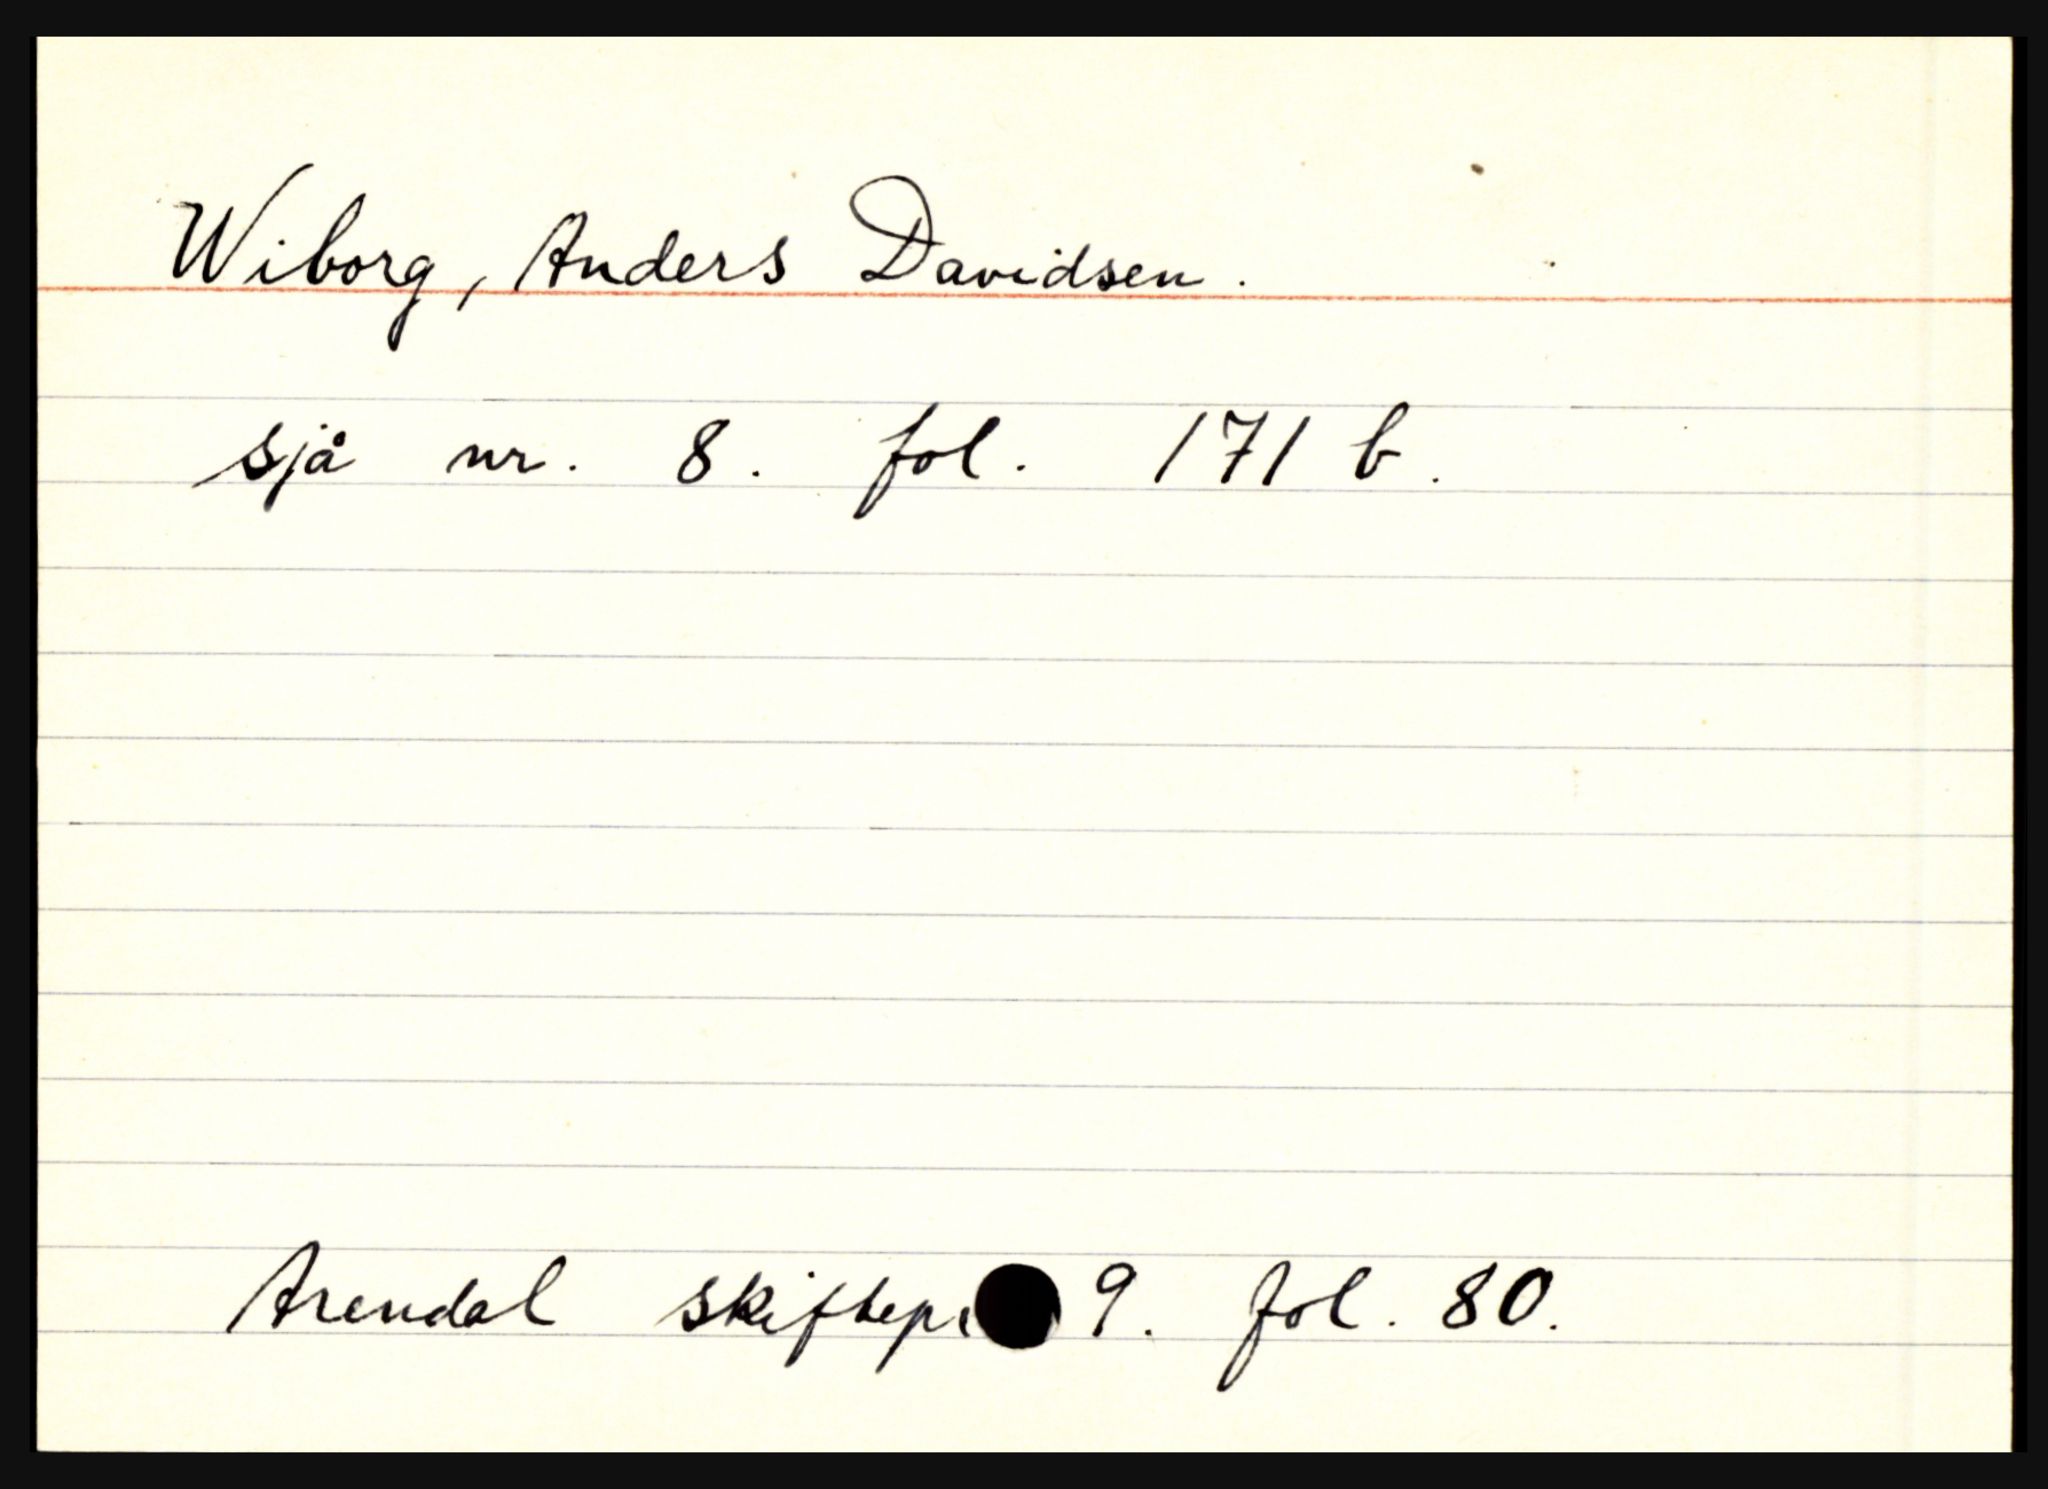 Wiborg, Anders Davidsen.
sjå nr. 8. fol. 171 b.
Arendal skiftepr 9. fol. 80.